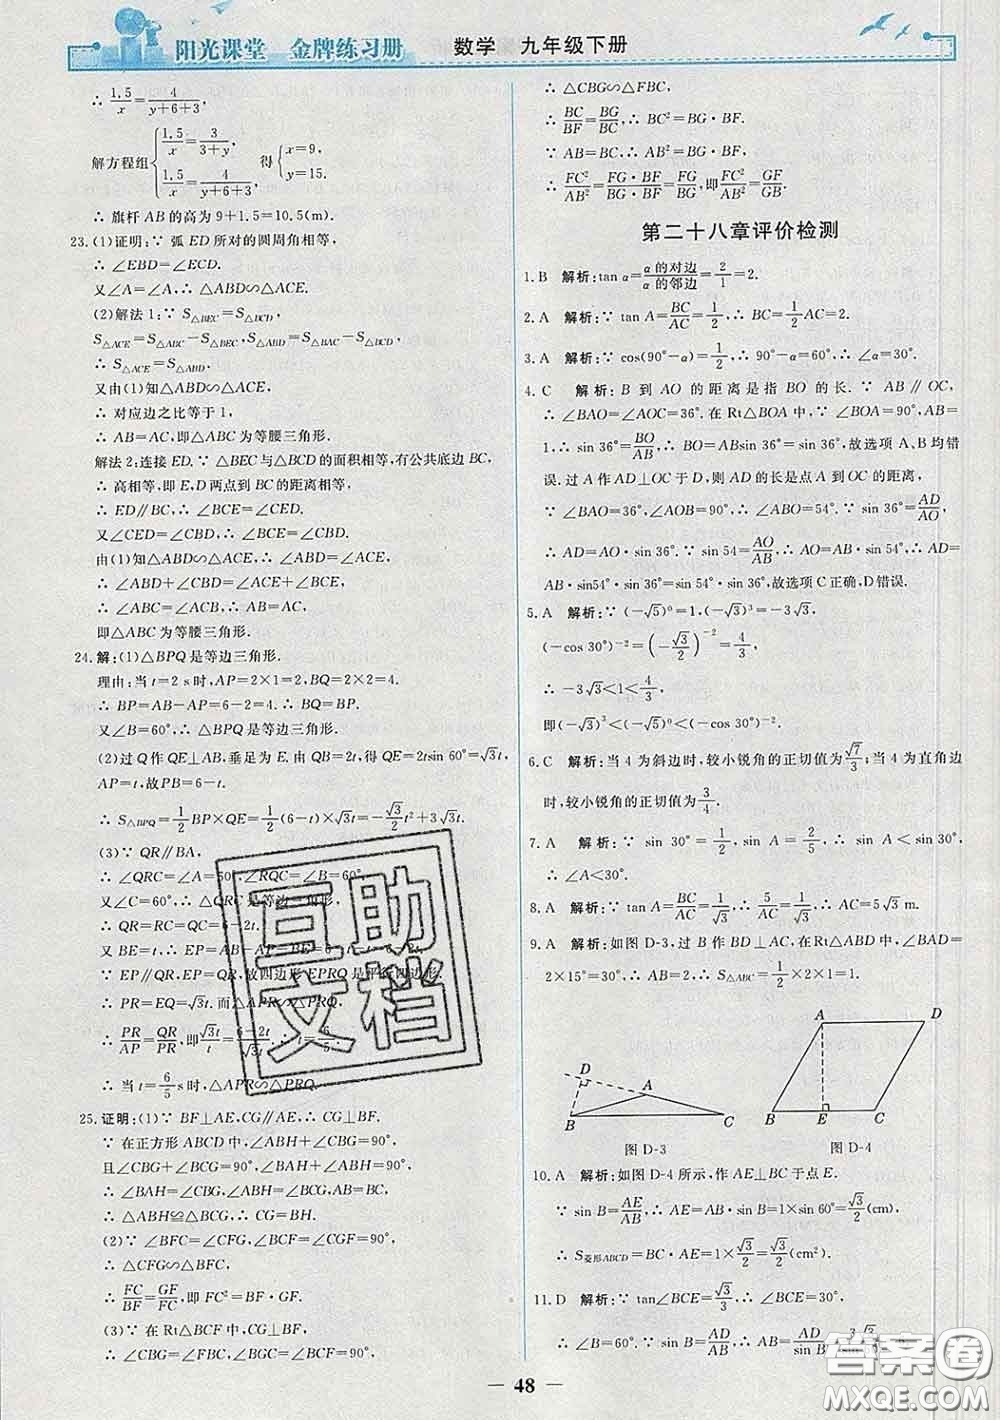 阳光课堂 金牌练习册 数学 九年级下册
∴ 1.5/x=4/(y+6+3),
解方程组{1.5/x=3/(3+y), 1.5/x=4/(y+6+3), 得{x=9, y=15.
∴ 旗杆 AB 的高为 9+1.5=10.5(m).
23.(1)证明:∵ 弧 ED 所对的圆周角相等,
∴ ∠EBD=∠ECD.
又∠A=∠A,∴ △ABD∽△ACE.
(2)解法 1:∵ S△BEC=S△BCD,
S△ACE=S△ABC−S△BEC,S△ABD=S△BAC−S△BCD,
∴ S△ACE=S△ABD.
又由(1)知△ABD∽△ACE,
∴ 对应边之比等于 1,
∴ AB=AC,即△ABC 为等腰三角形.
解法 2:连接 ED.∵ △BEC 与△BCD 的面积相等,有公共底边 BC,
∴ 高相等,即 E,D 两点到 BC 的距离相等,
∴ ED∥BC,∴ ∠BCE=∠CED.
又∠CED=∠CBD,∴ ∠BCE=∠CBD,
由(1)知△ABD∽△ACE,
∴ ∠ABD=∠ACE,
∴ ∠ABD+∠CBD=∠ACE+∠BCE,
∴ ∠ABC=∠ACB,∴ AB=AC,
即△ABC 为等腰三角形.
24.解:(1)△BPQ 是等边三角形.
理由:当 t=2 s 时,AP=2×1=2,BQ=2×2=4.
∴ BP=AB−AP=6−2=4. ∴ BQ=BP.
又∠B=60°,∴ △BPQ 是等边三角形.
(2)过 Q 作 QE⊥AB,垂足为 E.由 QB=2t,得 QE=2tsin 60°=√3t,
AP=t,故 PB=6−t.
∴ S△BPQ=1/2 BP×QE=1/2(6−t)×√3t=−√3/2 t²+3√3t.
(3)∵ QR∥BA,
∴ ∠QRC=∠A=60°,∠RQC=∠B=60°.
又∠C=60°,∴ △QRC 是等边三角形,
∴ QR=RC=QC=6−2t.
又 BE=t,∴ EP=AB−AP−BE=6−2t.
∵ EP∥QR,EP=QR,故四边形 EPRQ 是平行四边形.
∴ PR=EQ=√3t.而△APR∽△PRQ,
∴ PR/AP=QR/PR,即√3t/t=(6−2t)/√3t,∴ t=6/5.
∴ 当 t=6/5 s 时,△APR∽△PRQ.
25.证明:(1)∵ BF⊥AE,CG∥AE,∴ CG⊥BF.
∵ 在正方形 ABCD 中,∠ABH+∠CBG=90°,
且∠CBG+∠BCG=90°,∠BAH+∠ABH=90°,
∴ ∠BAH=∠CBG,∠ABH=∠BCG,
∴ △ABH≌△BCG,∴ CG=BH.
(2)∵ ∠BFC=∠CFG,∠BCF=∠CGF=90°,
∴ △CFG∽△BFC,
∴ FC/BF=GF/FC,即 FC²=BF·GF.
(3)∵ 在 Rt△BCF 中,CG⊥BF,
∴ ∠CFG=∠CFG=90°,∠CBG=∠CBF,
∴ △CBG∽△FBC,
∴ BC/BF=BG/BC,∴ BC²=BG·BF.
∵ AB=BC,∴ AB²=BG·BF,
∴ FC²/AB²=FG·BF/BG·BF=FG/BG,即FC²/AB²=GF/GB.
第二十八章评价检测
1.B 解析:tan α=α的对边/α的邻边=2/1=2.
2.A 解析:∵ tan A=BC/AC=1/2,∴ BC=1/2AC=2.
3.A 解析:∵ cos(90°−α)=1/2,∴ 90°−α=60°,∴ ∠α=30°.
4.C 解析:B 到 AO 的距离是指 BO 的长.∵ AB∥OC,
∴ ∠BAO=∠AOC=36°.在 Rt△BOA 中,∵ ∠BOA=90°,AB=
1,∴ sin 36°=BO/AB,∴ BO=ABsin 36°=sin 36°,故选项 A、B 均错
误.过 A 作 AD⊥OC 于 D,则 AD 的长是点 A 到 OC 的距离,
∵ ∠BAO=36°,∠AOB=90°,∴ ∠ABO=54°.∵ sin 36°=AD/AO,
∴ AD=AO·sin 36°.∵ sin 54=AO/AB,∴ AO=AB·sin 54°,∴ AD=
AB·sin54°·sin 36°=sin 54°·sin 36°,故选项 C 正确,D 错误.
5.A 解析:∵ (−√5)⁰=1,(−√3)³=−3√3,
(−cos 30°)⁻²=(−√3/2)⁻²=4/3,
∴ −3√3<1<4/3,
即(−√3)³<(−√5)⁰<(−cos 30°)⁻².
6.C 解析:当 4 为斜边时,较小锐角的正切值为√7/3;当 4 为直角边
时,较小锐角的正切值为3/4.
7.A 解析:∵ sin 30°=1/2,sin A=2/5,∴ sin A<sin 30°,
∴ ∠A<30°.
8.A 解析:∵ tan A=BC/AC=1/√3,∴ 5/AC=1/√3,∴ AC=5√3 m.
9.A 解析:如图 D-3,过 B 作 BD⊥AC,在 Rt△ABD 中,∠BAD=
2×15°=30°.∴ AB=2,∴ S△ABC=1/2×2×1=1.
D A B C
图 D-3
A D B E C
图 D-4
10.A 解析:如图 D-4 所示,作 AE⊥BC 于点 E.
∵ sin B=AE/AB,∴ AE=AB·sin B=1×sin 60°=√3/2(cm),
∴ S菱形ABCD=BC·AE=1×√3/2=√3/2(cm²).
11.D 解析:∵ tan∠BCE=√3/3,∴ ∠BCE=30°,
∴ ∠B=60°.∵ sin B=AD/AB,∴ AB=AD/sin B
48
互助文档
答案圈
MXQE.COM